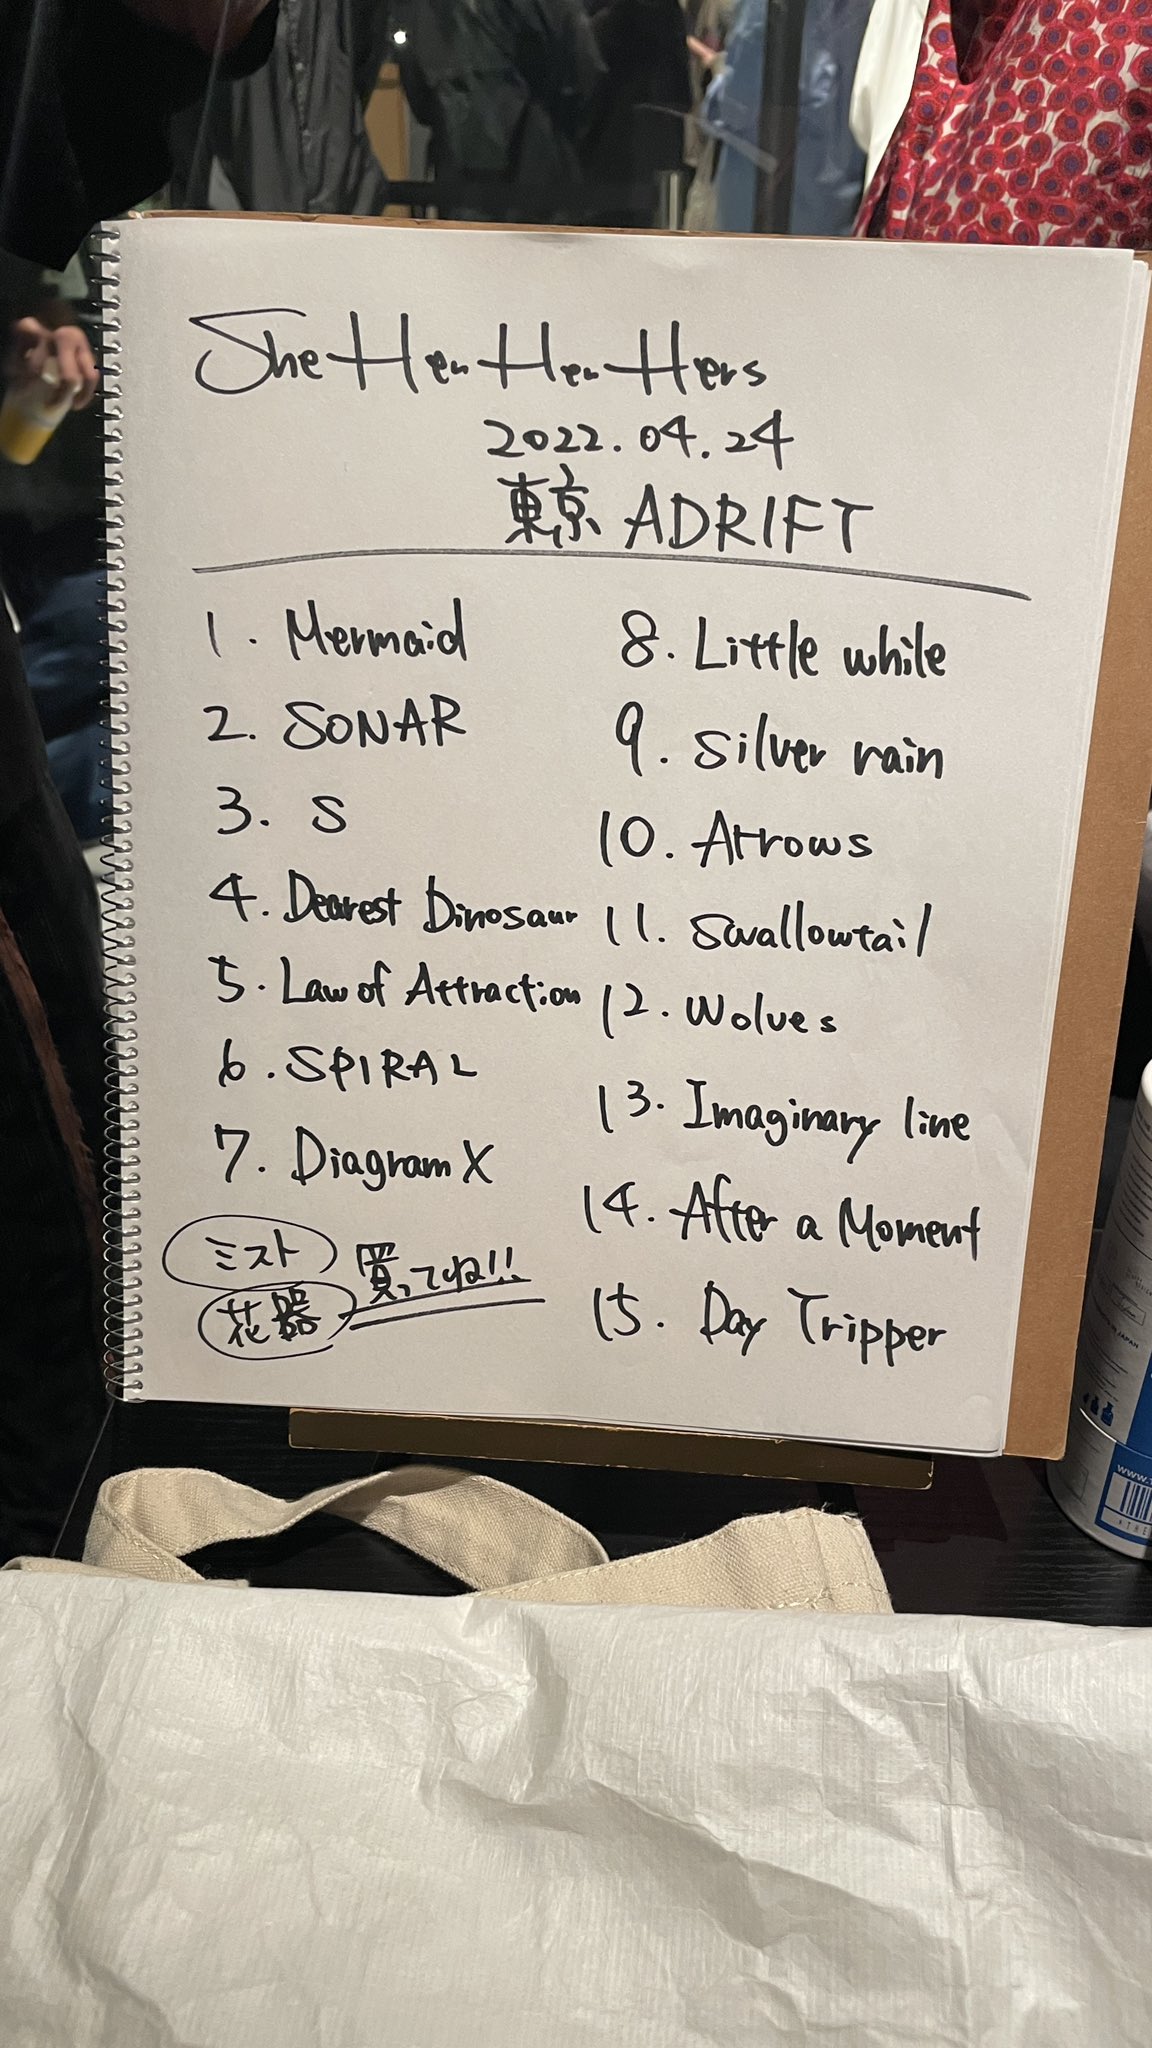 She Her Her Hers
2022.04.24
東京 ADRIFT
1. Mermaid
2. SONAR
3. S
4. Dearest Dinosaur
5. Law of Attraction
6. SPIRAL
7. Diagram X
8. Little while
9. Silver rain
10. Arrows
11. Swallowtail
12. Wolves
13. Imaginary line
14. After a Moment
15. Day Tripper
ミスト
花器
買ってね!!
www.